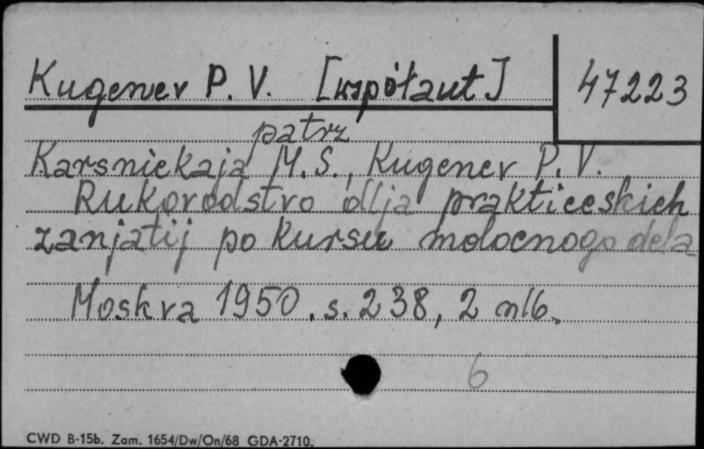 Kugenev P. V. [współaut]
47223
patrz
Karsniekaja M.S., Kugenev P. V.
Rukovodstvo dlja prakticeskich
zanjatij po kursu molocnogo dela
Moskva 1950. s. 238, 2 nlb.
6
CWD B-15b. Zam. 1654/Dw/On/68 GDA-2710.